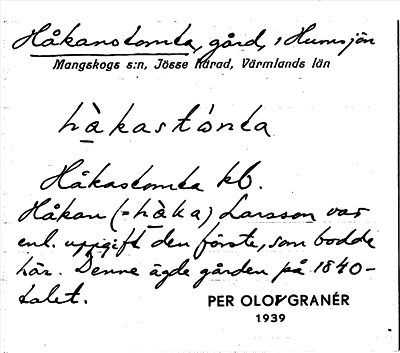 Håkanstomta, gård, i Humsjön
Mangskogs s:n, Jösse härad, Värmlands län
hàkastònta
Håkastomta kb.
Håkan (=hàka) Larsson var
enl. uppgift den förste, som bodde
här. Denne ägde gården på 1840-
talet.
PER OLOF GRANÉR
1939